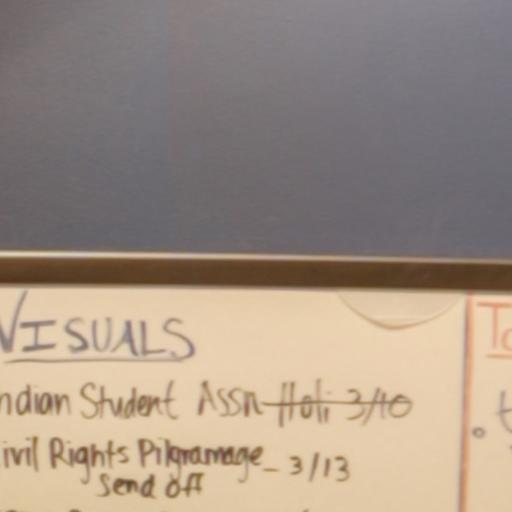 VISUALS
ndian Student Assn Holi 3/10
ivil Rights Pilgramage - 3/13
Send off
To